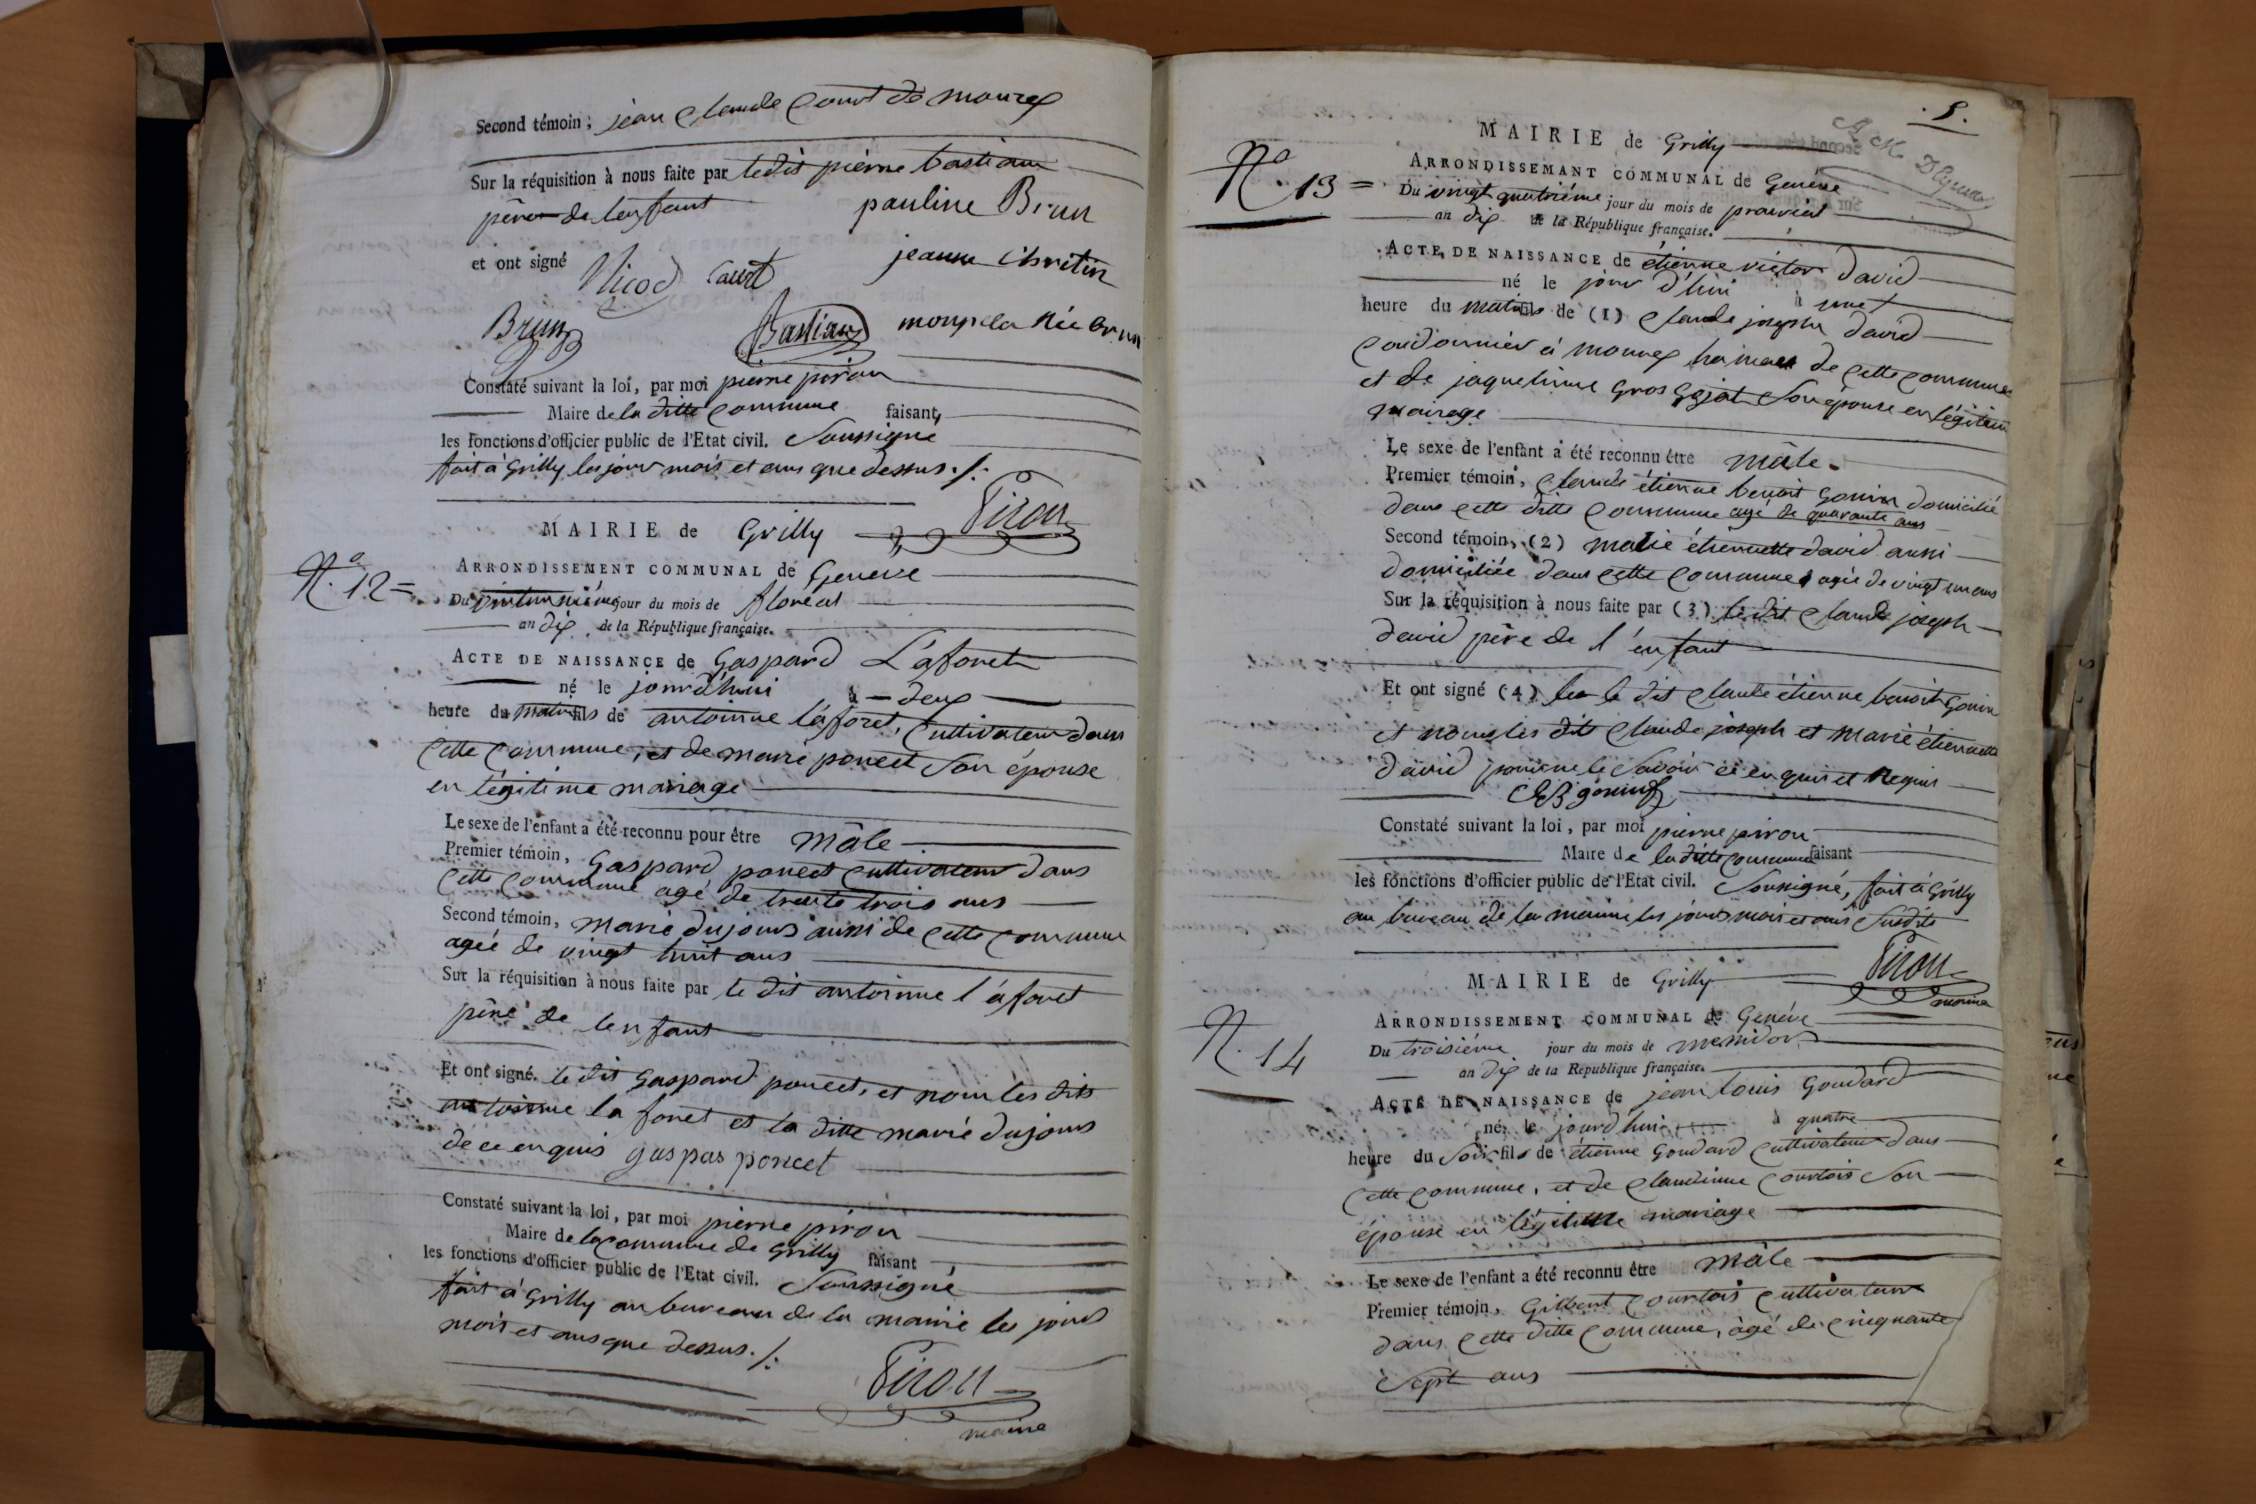 Second témoin, jean Claude Court de mourex
Sur la réquisition à nous faite par ledit pierre bastian
père de lenfant pauline Brun
et ont signé Nicod Court jeanne Chrètin
Brun Bastian monpela née brun
Constaté suivant la loi, par moi pierre piron
Maire de la ditte Commune faisant
les fonctions d'officier public de l'Etat civil. Soussigné
fait à Grilly les jour mois et ans que dessus ./.
Piron
MAIRIE de Grilly
N.o 12 =
ARRONDISSEMENT COMMUNAL de Geneve
Du jour du mois de floréal
an dix de la République française.
ACTE DE NAISSANCE de Gaspard L'aforet
né le jourd'hui à deux
heure du matin fils de antoinne l'aforet, Cultivateur dans
Cette Commune, et de marie poncet Son épouse
en légitime mariage
Le sexe de l'enfant a été reconnu pour être mâle
Premier témoin, Gaspard poncet Cultivateur dans
Cette Commune agé de trente trois ans
Second témoin, marie dujours aussi de Cette Commune
agée de vingt huit ans
Sur la réquisition à nous faite par le dit antoinne l'aforet
père de lenfant
Et ont signé. le dit Gaspard poncet, et non les dits
antoinne la foret et la ditte marie dujours
de ce enquis gaspas poncet
Constaté suivant la loi, par moi pierre piron
Maire de la Commune de Grilly faisant
les fonctions d'officier public de l'Etat civil. Soussigné
fait à Grilly au bureau de la mairie les jours
mois et ans que dessus ./.
Piron
maire
. 5.
MAIRIE de Grilly
N.o 13 =
ARRONDISSEMANT COMMUNAL de Genève
Du vingt quatriéme jour du mois de prairial
an dix de la République française.
ACTE DE NAISSANCE de étienne victor david
né le jour d'hui à une
heure du matin fils de (1) Claude joseph david
Cordonnier à mourex hameau de Cette Commune
et de jaquelinne Gros Gojat Son épouse en légitime
mariage
Le sexe de l'enfant a été reconnu être mâle.
Premier témoin, Claude étienne benoit Gonin domicilié
dans Cette ditte Commune agé de quarante ans
Second témoin, (2) marie étiennette david aussi
domiciliée dans Cette Commune agée de vingt un ans
Sur la réquisition à nous faite par (3) le dit Claude joseph
david père de l'enfant
Et ont signé (4) le dit Claude étienne benoit Gonin
et non les dits Claude joseph et marie étiennette
david pour ne le Savoir de ce enquis et Requis
CEB gonin
Constaté suivant la loi, par moi pierre piron
Maire de la ditte Commune faisant
les fonctions d'officier public de l'Etat civil. Soussigné, fait à Grilly
au bureau de la mairie les jours mois et ans Susdits
Piron
maire
MAIRIE de Grilly
N. 14
ARRONDISSEMENT COMMUNAL de Genève
Du troisiéme jour du mois de messidor
an dix de la République française.
ACTE DE NAISSANCE de jean louis Goudard
né le jourd'hui à quatre
heure du Soir fils de étienne Goudard Cultivateur dans
Cette Commune, et de Claudinne Courtois Son
épouse en légitime mariage
Le sexe de l'enfant a été reconnu être mâle
Premier témoin, Gilbert Courtois Cultivateur
dans Cette ditte Commune, àgé de Cinquante
Sept ans